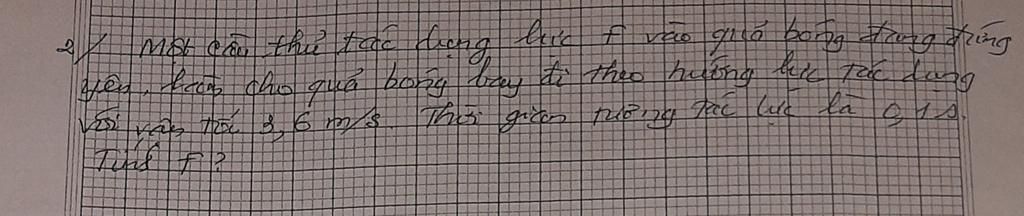 2/ Một cầu thủ tác dụng lực F vào quả bóng đang đứng
yên, làm cho quả bóng bay đi theo hướng lực tác dụng
với vận tốc 3,6 m/s. Thời gian tương tác lực là 0,1s.
Tính F?